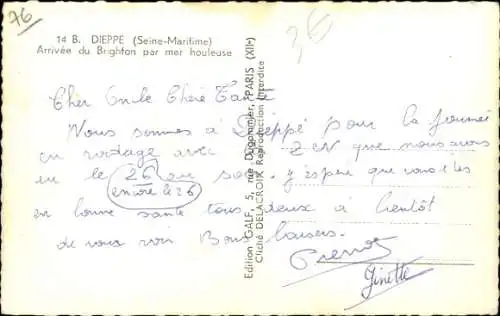 76
3€
14 B. DIEPPE (Seine-Maritime)
Arrivée du Brighton par mer houleuse
Cher Oncle Chère Tante
Nous sommes à Dieppe pour la journée
en rodage avec 2 CV que nous avons
eu le 26 au soir. J'espère que vous êtes
encore le 26
en bonne santé tous deux à bientôt
de vous voir Bons baisers.
Ginette
Edition GALF, 5, rue Dugommier, PARIS (XIIe)
Cliché DELACROIX Reproduction Interdite